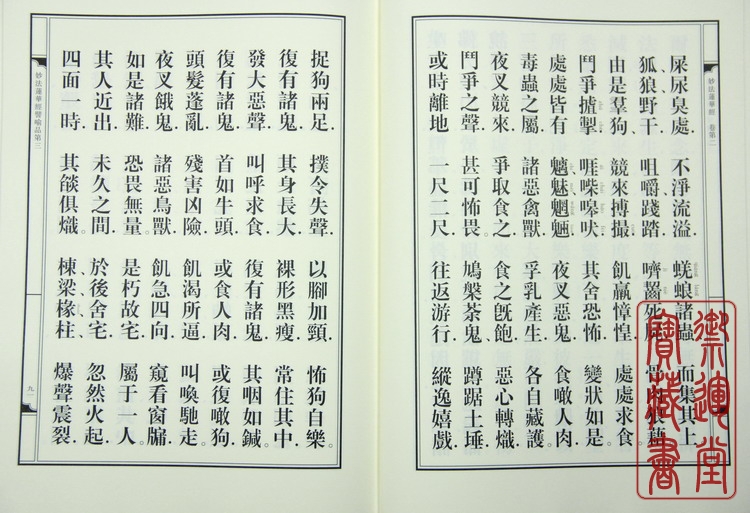 妙法蓮華經 卷第二
屎尿臭處 不淨流溢 蜣蜋諸蟲 而集其上
狐狼野干 咀嚼踐踏 嚌齧死屍 骨肉狼藉
由是羣狗 競來搏撮 飢羸慞惶 處處求食
鬥爭摣掣 啀喍嗥吠 其舍恐怖 變狀如是
處處皆有 魑魅魍魎 夜叉惡鬼 食噉人肉
毒蟲之屬 諸惡禽獸 孚乳產生 各自藏護
夜叉競來 爭取食之 食之既飽 惡心轉熾
鬥爭之聲 甚可怖畏 鳩槃荼鬼 蹲踞土埵
或時離地 一尺二尺 往返游行 縱逸嬉戲
捉狗兩足 撲令失聲 以腳加頸 怖狗自樂
復有諸鬼 其身長大 裸形黑瘦 常住其中
發大惡聲 叫呼求食 復有諸鬼 其咽如鍼
復有諸鬼 首如牛頭 或食人肉 或復噉狗
頭髮蓬亂 殘害凶險 飢渴所逼 叫喚馳走
夜叉餓鬼 諸惡鳥獸 飢急四向 窺看窗牖
如是諸難 恐畏無量 是朽故宅 屬于一人
其人近出 未久之間 於後舍宅 忽然火起
四面一時 其燄俱熾 棟梁椽柱 爆聲震裂
妙法蓮華經譬喻品第三
九一
御運堂
寶藏書